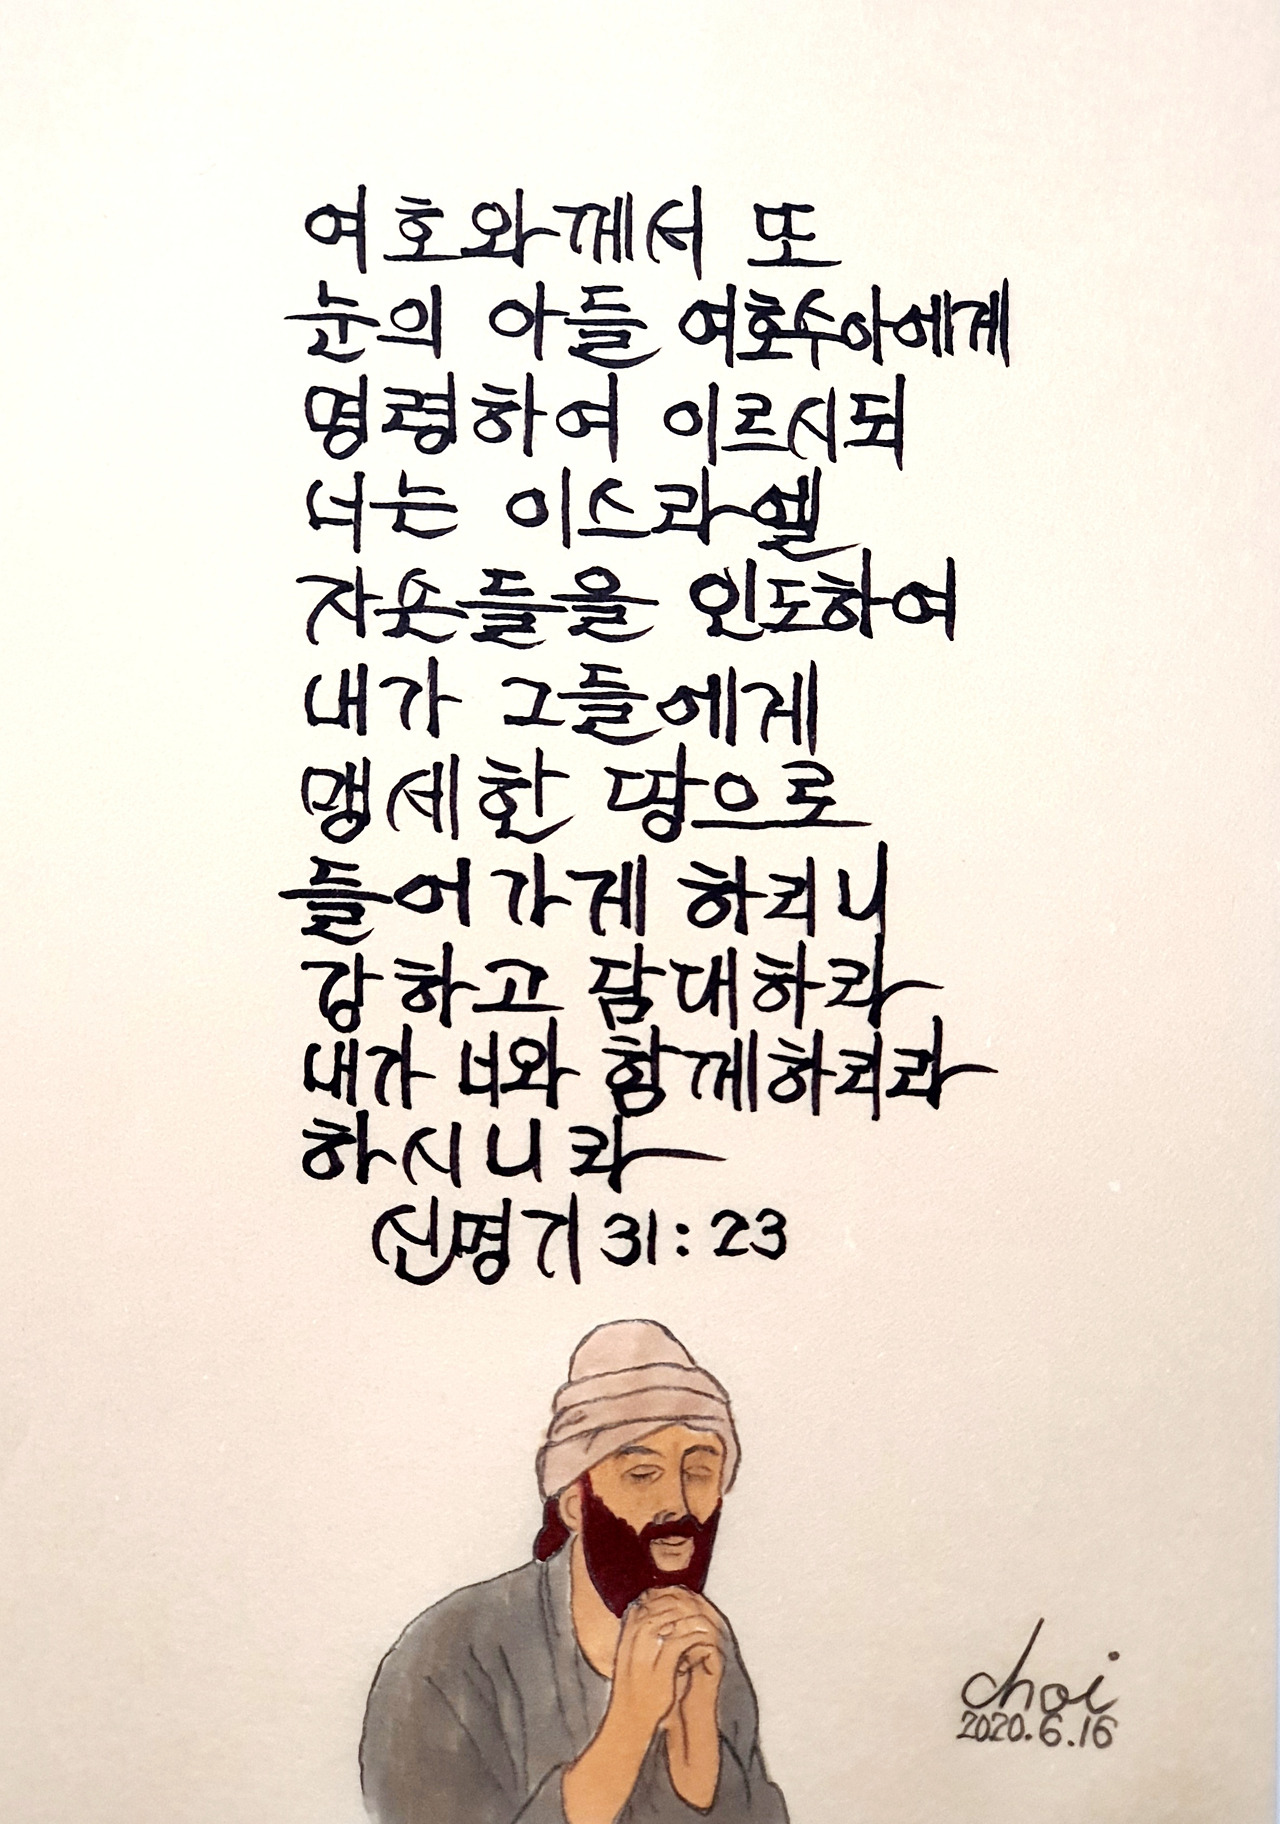 여호와께서 또
눈의 아들 여호수아에게
명령하여 이르시되
너는 이스라엘
자손들을 인도하여
내가 그들에게
맹세한 땅으로
들어가게 하리니
강하고 담대하라
내가 너와 함께하리라
하시니라
신명기 31:23
choi
2020.6.16